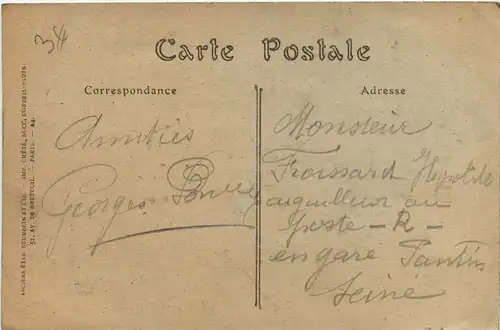 34
Carte Postale
Correspondance
Adresse
Amitiés
Georges
Monsieur
Froissard Hypolite
aiguilleur au
poste - R -
en gare Pantin
Seine
ANCIENS ÉTAB. NEURDEIN ET CIE. — IMP. CRÉTÉ, SUCC. CORBEIL-PARIS.
52, AV. DE BRETEUIL. — PARIS. — 44.